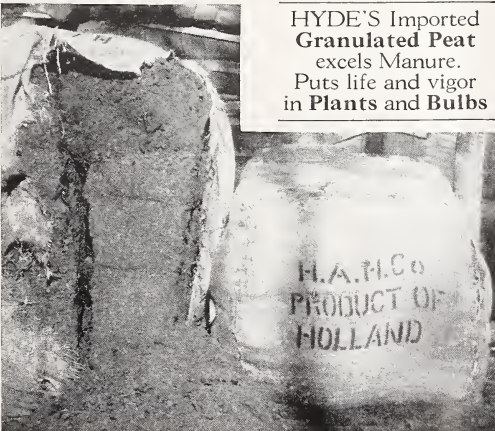 HYDE'S Imported
Granulated Peat
excels Manure.
Puts life and vigor
in Plants and Bulbs
H.A.H.Co
PRODUCT OF
HOLLAND